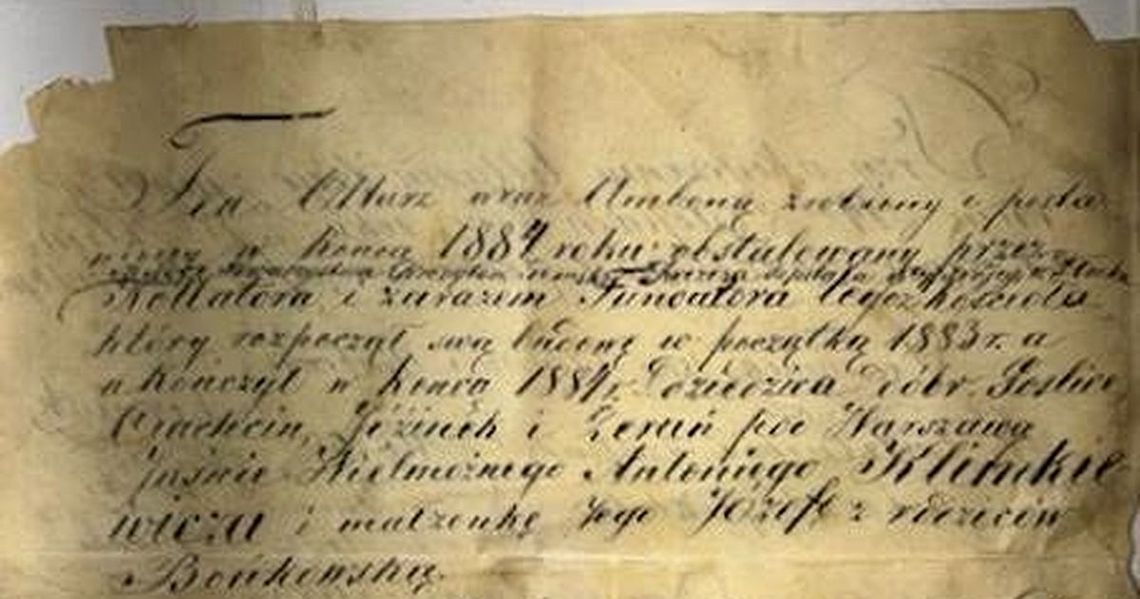 Ten Ołtarz wraz Amboną zrobiony i posta
wiony w końcu 1884 roku obstalowany przez
Kollatora i zarazem Fundatora tegoż kościoła
który rozpoczął swą budowę w początku 1883 r. a
ukończył w końcu 1884 r. Dziedzica dóbr Goslice
Ciachcin, Józinek i Żerań pod Warszawą
jaśnie Wielmożnego Antoniego Klimkie
wicza i małżonkę Jego Józefę z rodziców
Bońkowską.